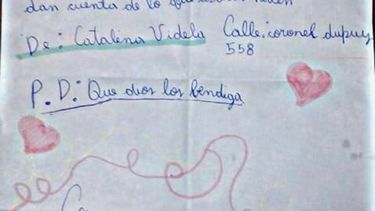 dan cuenta de lo que
De: Catalina Videla Calle: coronel dupuy
558
P.D: Que dios los bendiga